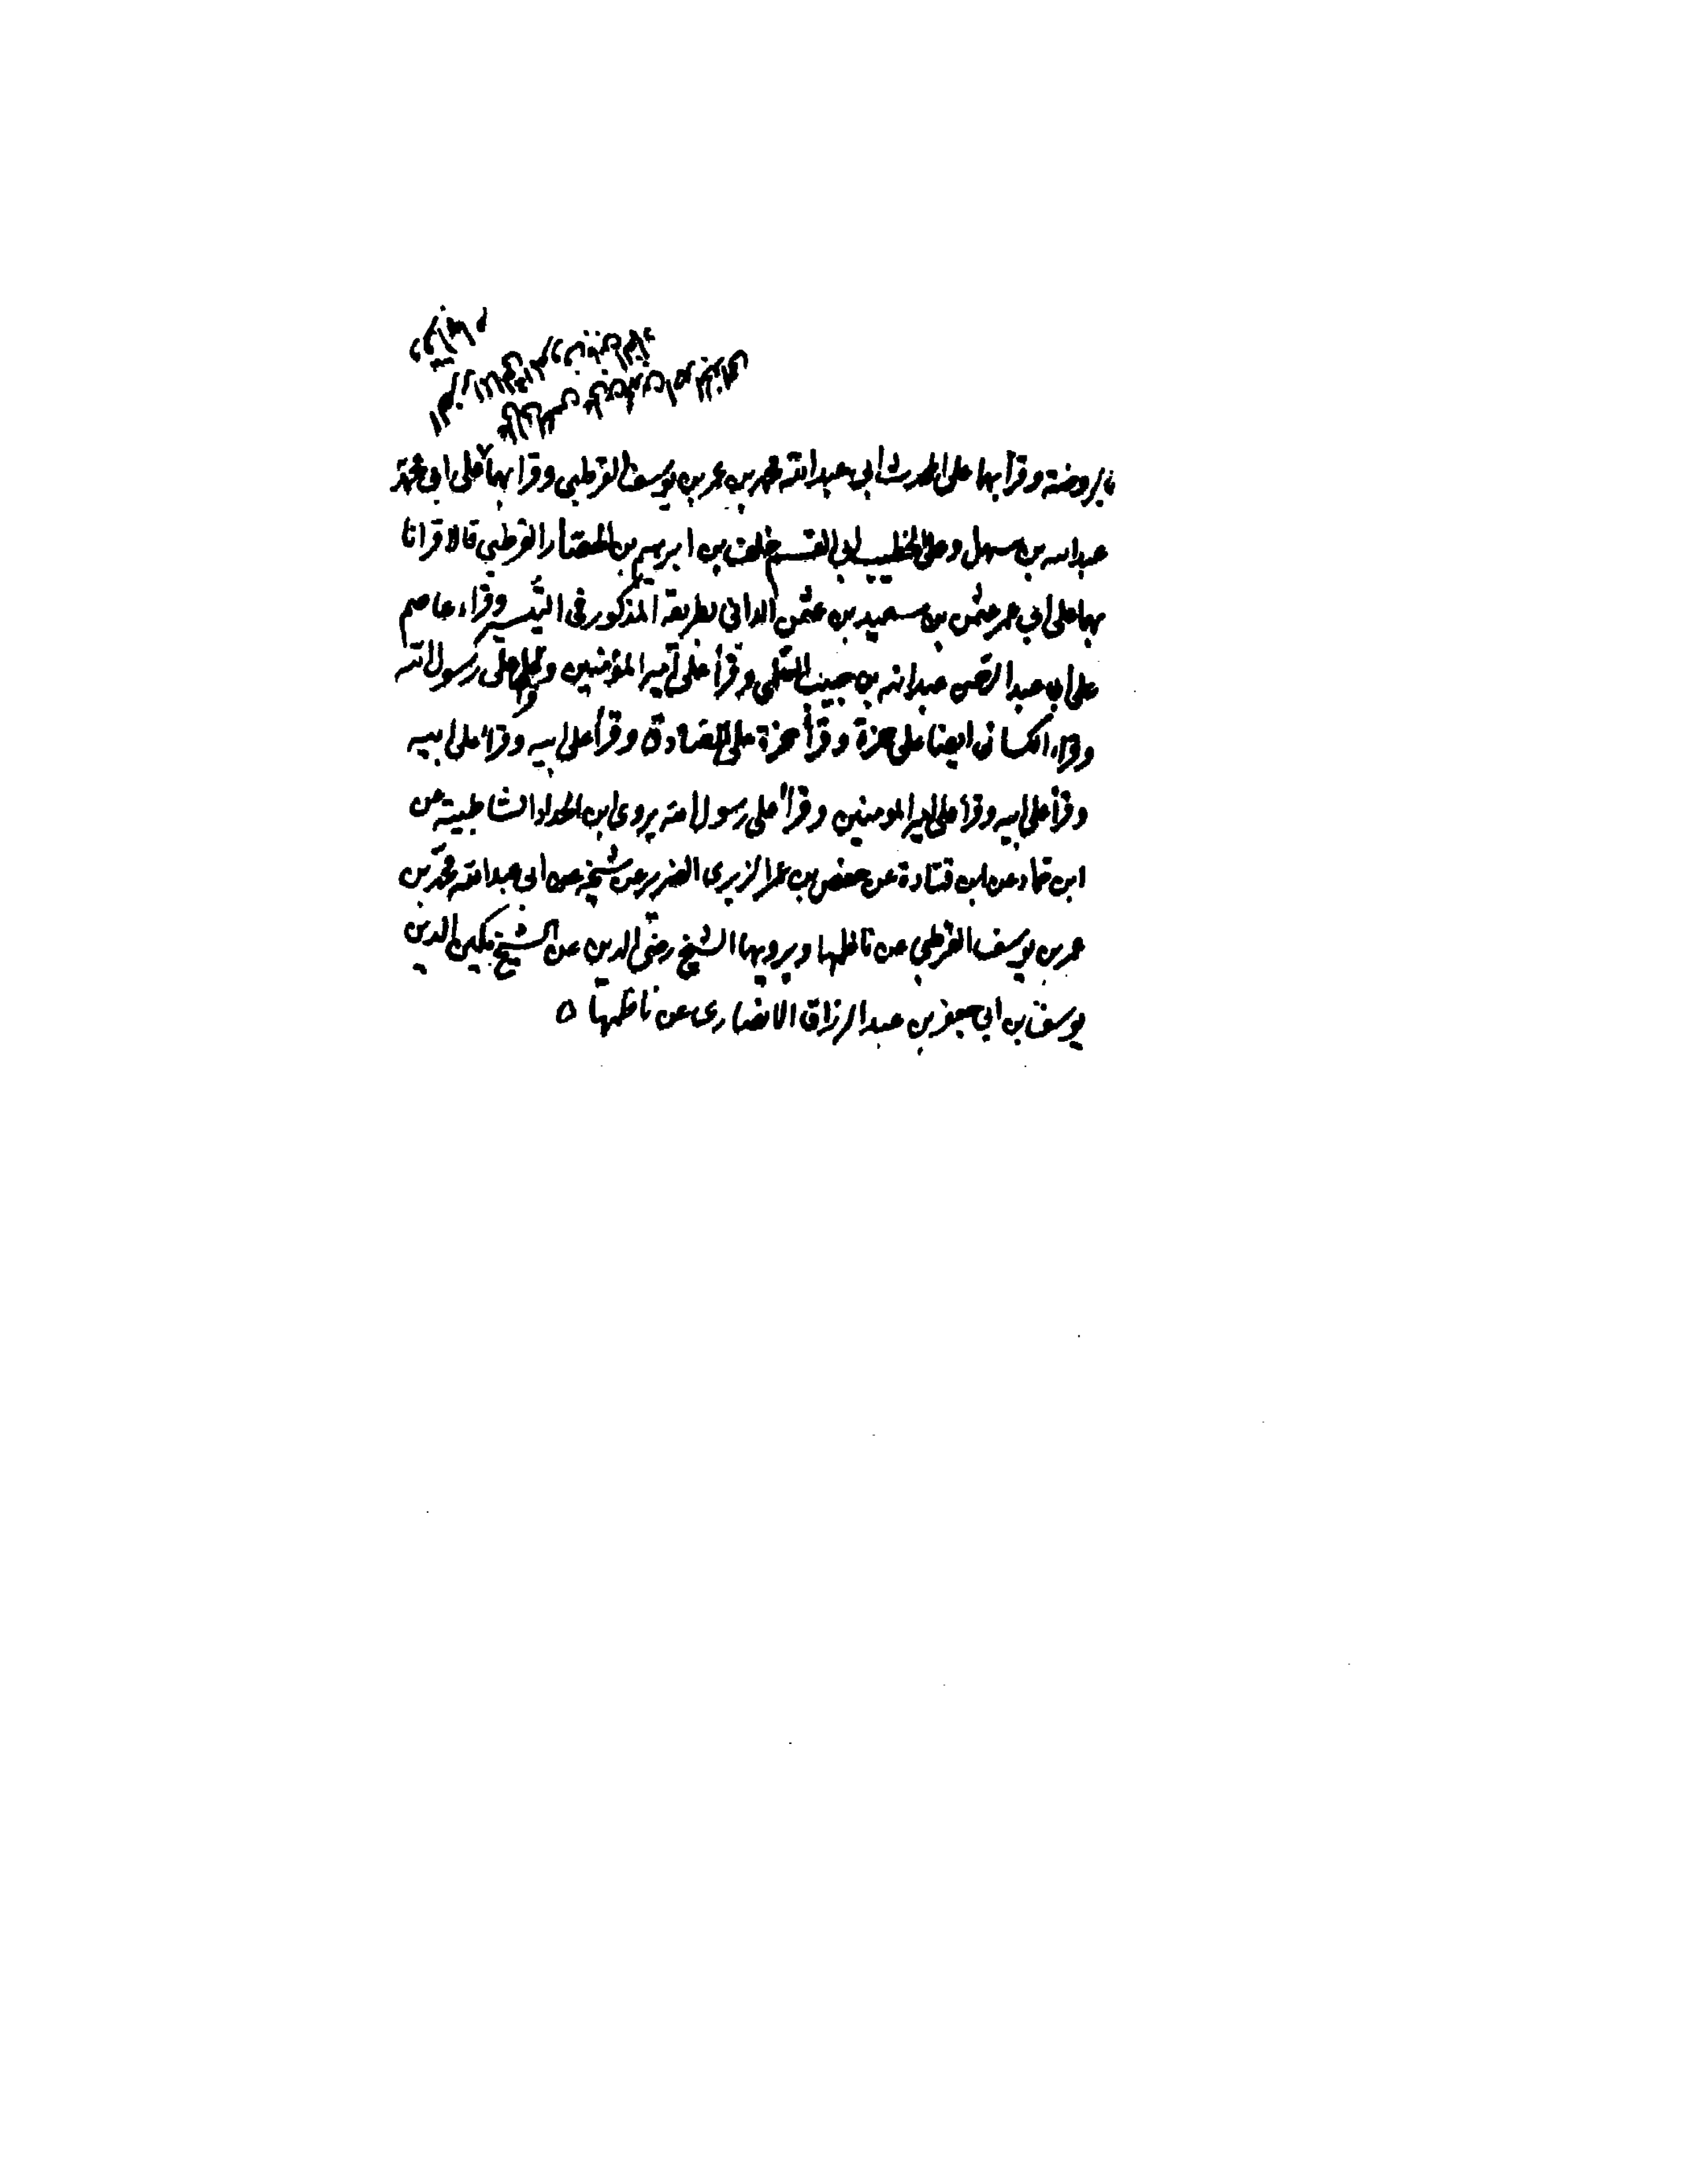 بابروضة وقرأ بها على المحدث ابي عبد الله محمد بن عمر بن يوسف القرطبي وقرا بها على ابي محمد
عبد الله بن سهل وعلى الخطيب ابي القسم خلف بن ابرهيم بن القرطبي قالا قرانا
بها على ابي عمر عثمن بن سعيد بن عثمن الداني بطريقه المذكور في التيسير وقراء عاصم
على ابي عبد الرحمن عبد الله بن حبيب السلمي وقرأ على امير المؤمنين على رسول الله
وقراء الكسائي ايضا على حمزة وقرأ حمزة على الصادق وقرأ على ابيه وقرا على ابيه
وقرأ على ابيه وقرأ على امير المومنين وقرأ على رسول الله يروى ابن الحداد الشاطبية عن
ابن حماد عن ابن قتادة عن حفص بن عمر الزبرى الضرير عن شيخه عن ابى عبد الله محمد بن
عمر بن يوسف القرطبي عن ناظمها ويرويها الشيخ رضى الدين عن الشيخ مكين الدين
يوسف بن ابي جعفر بن عبد الرزاق الانصارى عن ناظمها ه